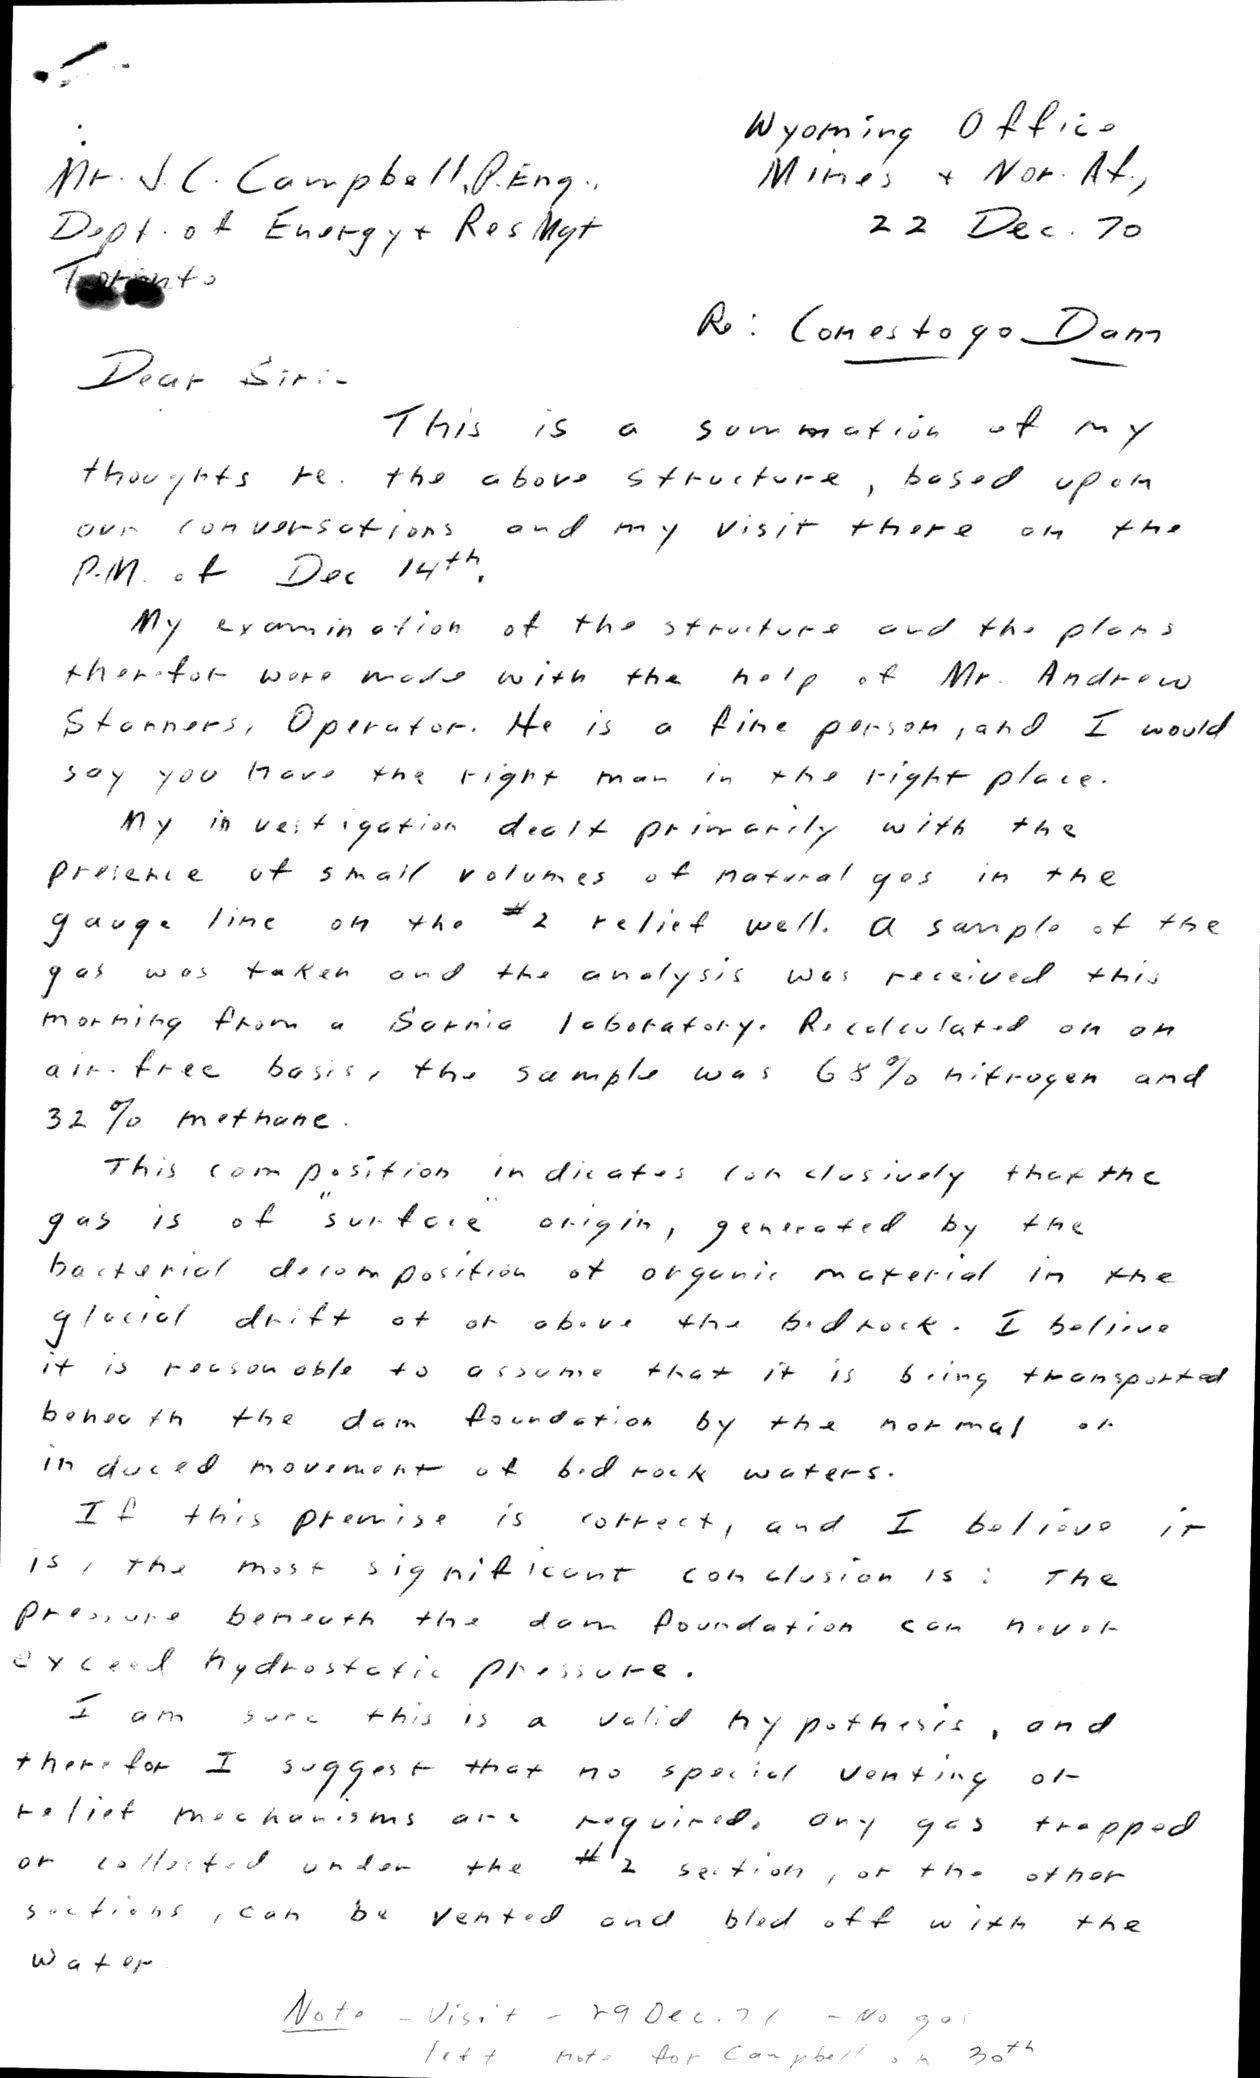 Wyoming Office
Mines + Nor. Af.,
22 Dec. 70
Mr. J. C. Campbell, P. Eng.,
Dept. of Energy + Res Mgt
Toronto
Re: Conestogo Dam
Dear Sir:-
This is a summation of my
thoughts re. the above structure, based upon
our conversations and my visit there on the
P.M. of Dec 14th.
My examination of the structure and the plans
therefor were made with the help of Mr. Andrew
Stanners, Operator. He is a fine person, and I would
say you have the right man in the right place.
My investigation dealt primarily with the
presence of small volumes of natural gas in the
gauge line on the #2 relief well. A sample of the
gas was taken and the analysis was received this
morning from a Sarnia laboratory. Recalculated on an
air-free basis, the sample was 68% nitrogen and
32% methane.
This composition indicates conclusively that the
gas is of "surface" origin, generated by the
bacterial decomposition of organic material in the
glacial drift at or above the bedrock. I believe
it is reasonable to assume that it is being transported
beneath the dam foundation by the normal or
induced movement of bedrock waters.
If this premise is correct, and I believe it
is, the most significant conclusion is: The
pressure beneath the dam foundation can never
exceed hydrostatic pressure.
I am sure this is a valid hypothesis, and
therefor I suggest that no special venting or
relief mechanisms are required. Any gas trapped
or collected under the #2 section, or the other
sections, can be vented and bled off with the
water
Note - Visit - 29 Dec. 71 - No gas
left note for Campbell on 30th